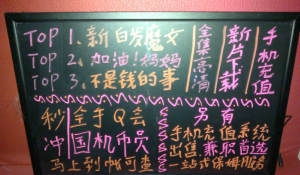 TOP 1、新白发魔女
TOP 2、加油!妈妈
TOP 3、不是钱的事
全集高清
新片下载
手机充值
秒全手Q会
冲国机币员
马上到帐可查
另有
手机充值系统
出售兼职首选
一站式保姆服务